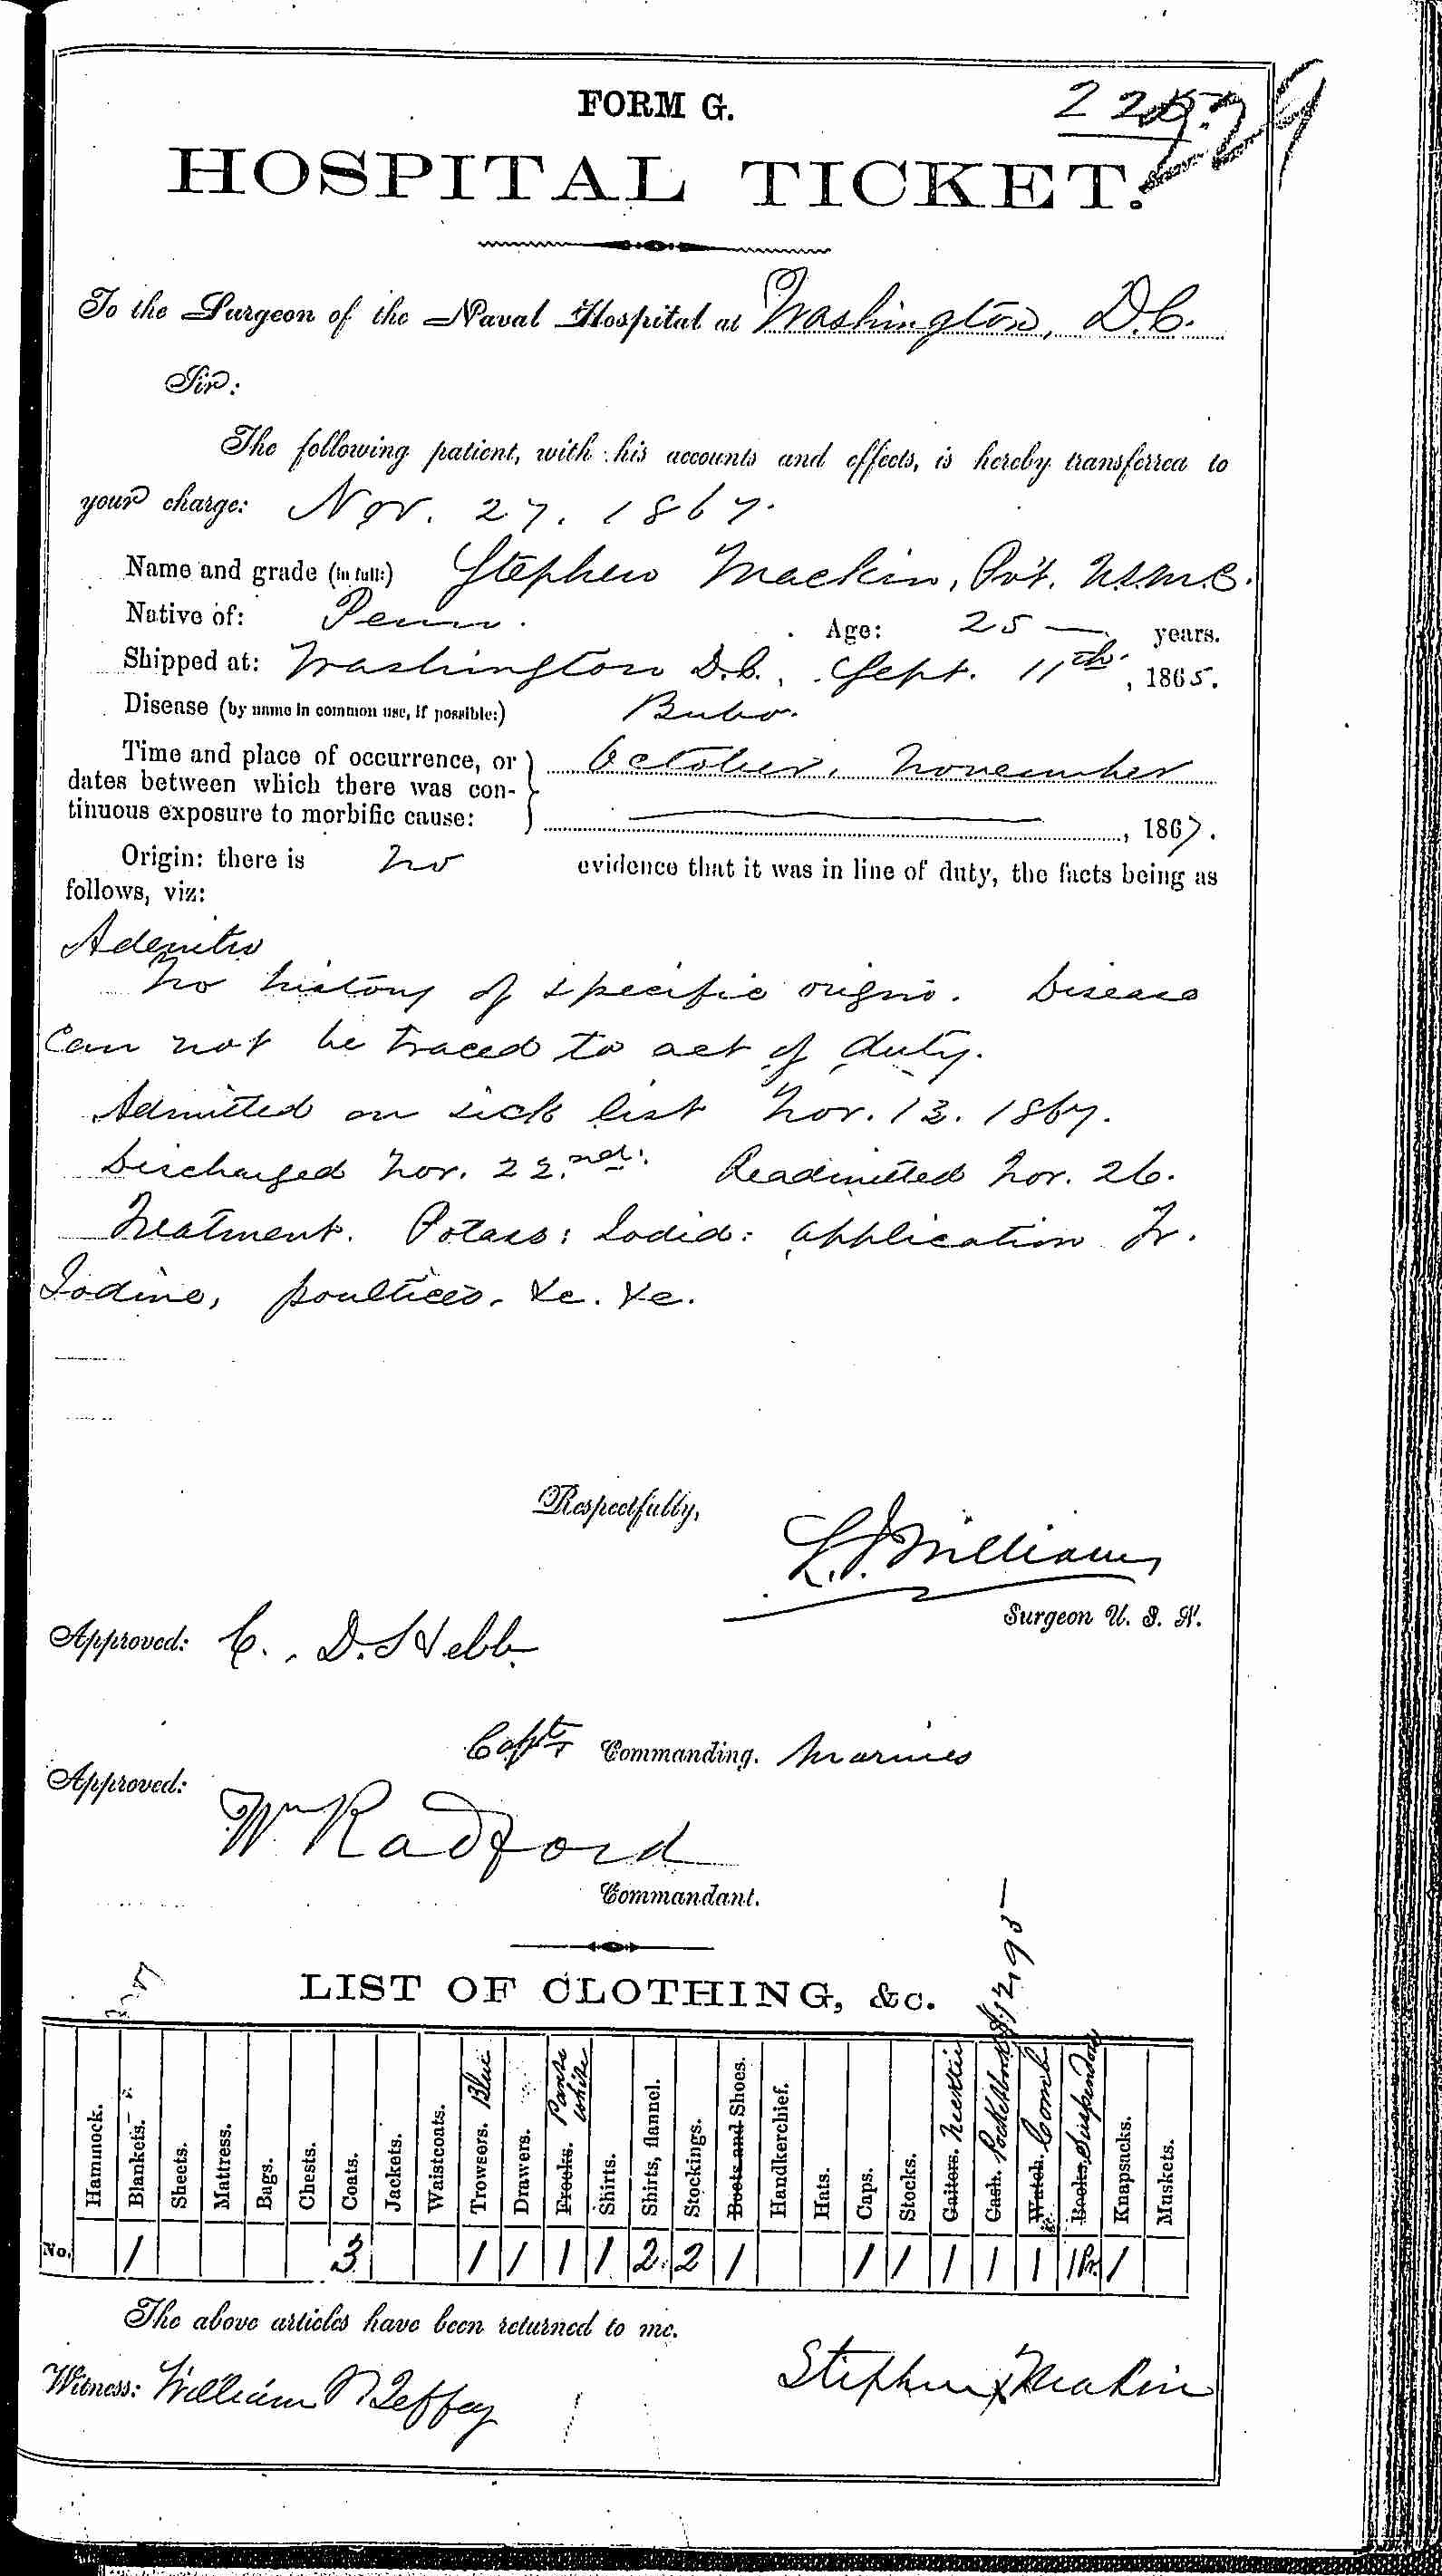 FORM G.
229
HOSPITAL TICKET.
To the Surgeon of the Naval Hospital at Washington, D.C.
Sir:
The following patient, with his accounts and effects, is hereby transferred to
your charge: Nov. 27. 1867.
Name and grade (in full:) Stephen Mackin, Pvt. U.S.M.C.
Native of: Penn. Age: 25 — years.
Shipped at: Washington D.C., Sept. 11th, 1865.
Disease (by name in common use, if possible:) Bubo.
Time and place of occurrence, or } October, November
dates between which there was con-
tinuous exposure to morbific cause: , 1867.
Origin: there is no evidence that it was in line of duty, the facts being as
follows, viz:
Adenitis
No history of specific origin. Disease
can not be traced to act of duty.
Admitted on sick list Nov. 13. 1867.
Discharged Nov. 22nd. Readmitted Nov. 26.
Treatment. Potass: Iodid: application Tr.
Iodine, poultices, &c. &c.
Respectfully,
Surgeon U. S. N.
Approved: C. D. Hebb
Capt Commanding. Marines
Approved:
Wm Radford
Commandant.
LIST OF CLOTHING, &c.
Hammock. Blankets. Sheets. Mattress. Bags. Chests. Coats. Jackets. Waistcoats. Trowsers. Blue Drawers. Frocks. Pants white Shirts. Shirts, flannel. Stockings. Boots and Shoes. Handkerchief. Hats. Caps. Stocks. Gaiters. Necktie Cash. Pocketbook $12.95 Watch. Comb Books. Suspenders Knapsacks. Muskets.
No. 1 3 1 1 1 1 2 2 1 1 1 1 1 1 1 Pr. 1
The above articles have been returned to me.
Witness: William Stephen Makin